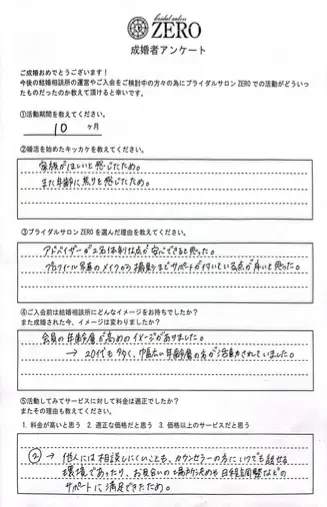 bridal salon
ZERO
成婚者アンケート
ご成婚おめでとうございます!
今後の結婚相談所の運営やご入会をご検討中の方々の為にブライダルサロン ZERO での活動がどういっ
たものだったのか教えて頂けると幸いです。
①活動期間を教えてください。
10 ヶ月
②婚活を始めたキッカケを教えてください。
家族がほしいと感じたため。
また年齢に焦りを感じたため。
③ブライダルサロン ZERO を選んだ理由を教えてください。
アドバイザーが2名体制な点が安心できると思った。
プロフィール写真のメイクから撮影までサポートが付いている点が良いと思った。
④ご入会前は結婚相談所にどんなイメージをお持ちでしたか?
また成婚された今、イメージは変わりましたか?
会員の年齢層が高めのイメージがありました。
→ 20代も多く、幅広い年齢層の方が活動されていました。
⑤活動してみてサービスに対して料金は適正でしたか?
またその理由も教えてください。
1. 料金が高いと思う 2. 適正な価格だと思う 3. 価格以上のサービスだと思う
② → 他人には相談しにくいことも、カウンセラーの方にいつでも話せる
環境であったり、お見合いの場所決めも日程調整などの
サポートに満足できたため。